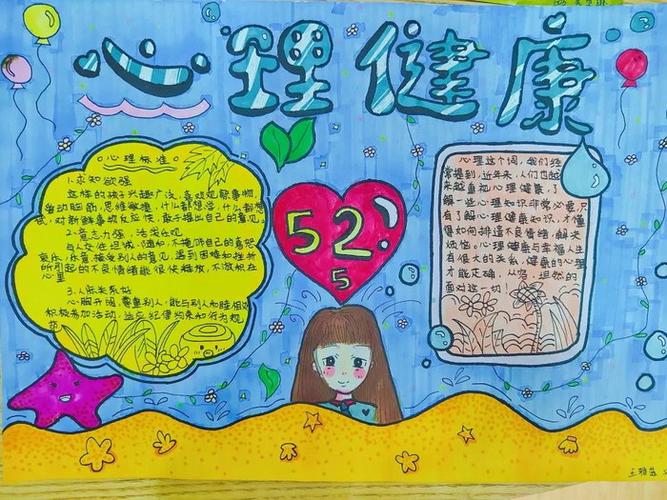 心理健康
心理标准
1.求知欲强
这样的孩子兴趣广泛,喜欢观察事物,
爱动脑筋,思维敏捷,什么都想学,什么都想
试,对新鲜事物反应快,敢于提出自己的意见。
2.意志力强,活泼乐观
与人交往坦诚,随和,不掩饰自己的喜怒
哀乐,乐意接受别人的意见,遇到困难和挫折
所引起的不良情绪能很快释放,不激积在
心里
3.人际关系好
心胸开阔,尊重别人,能与别人和睦相处
积极参加活动,适应纪律约束和行为规
范
52
5
心理这个词,我们经
常提到,近年来,人们也越
来越重视心理健康,了
解一些心理知识非常必要,只
有了解心理健康知识,才懂
得如何排遣不良情绪,解决
烦恼。心理健康与幸福人生
有很大的关系,健康的心理
才能正确、从容、坦然的
面对这一切!